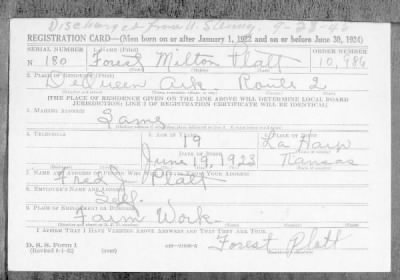 Discharged from U.S. Army, 9-28-45
REGISTRATION CARD—(Men born on or after January 1, 1922 and on or before June 30, 1924)
SERIAL NUMBER 1. NAME (Print) ORDER NUMBER
N 180 Forest Milton Platt 10,986
2. PLACE OF RESIDENCE (Print)
DeQueen Ark Route 2
[THE PLACE OF RESIDENCE GIVEN ON THE LINE ABOVE WILL DETERMINE LOCAL BOARD
JURISDICTION; LINE 2 OF REGISTRATION CERTIFICATE WILL BE IDENTICAL]
3. MAILING ADDRESS
Same
4. TELEPHONE 5. AGE IN YEARS 6. PLACE OF BIRTH
19 La Harp
DATE OF BIRTH
June 19, 1923 Kansas
7. NAME AND ADDRESS OF PERSON WHO WILL ALWAYS KNOW YOUR ADDRESS
Fred J. Platt
8. EMPLOYER'S NAME AND ADDRESS
Self.
9. PLACE OF EMPLOYMENT OR BUSINESS
Farm Work
I AFFIRM THAT I HAVE VERIFIED ABOVE ANSWERS AND THAT THEY ARE TRUE.
D. S. S. Form 1
Forest Platt